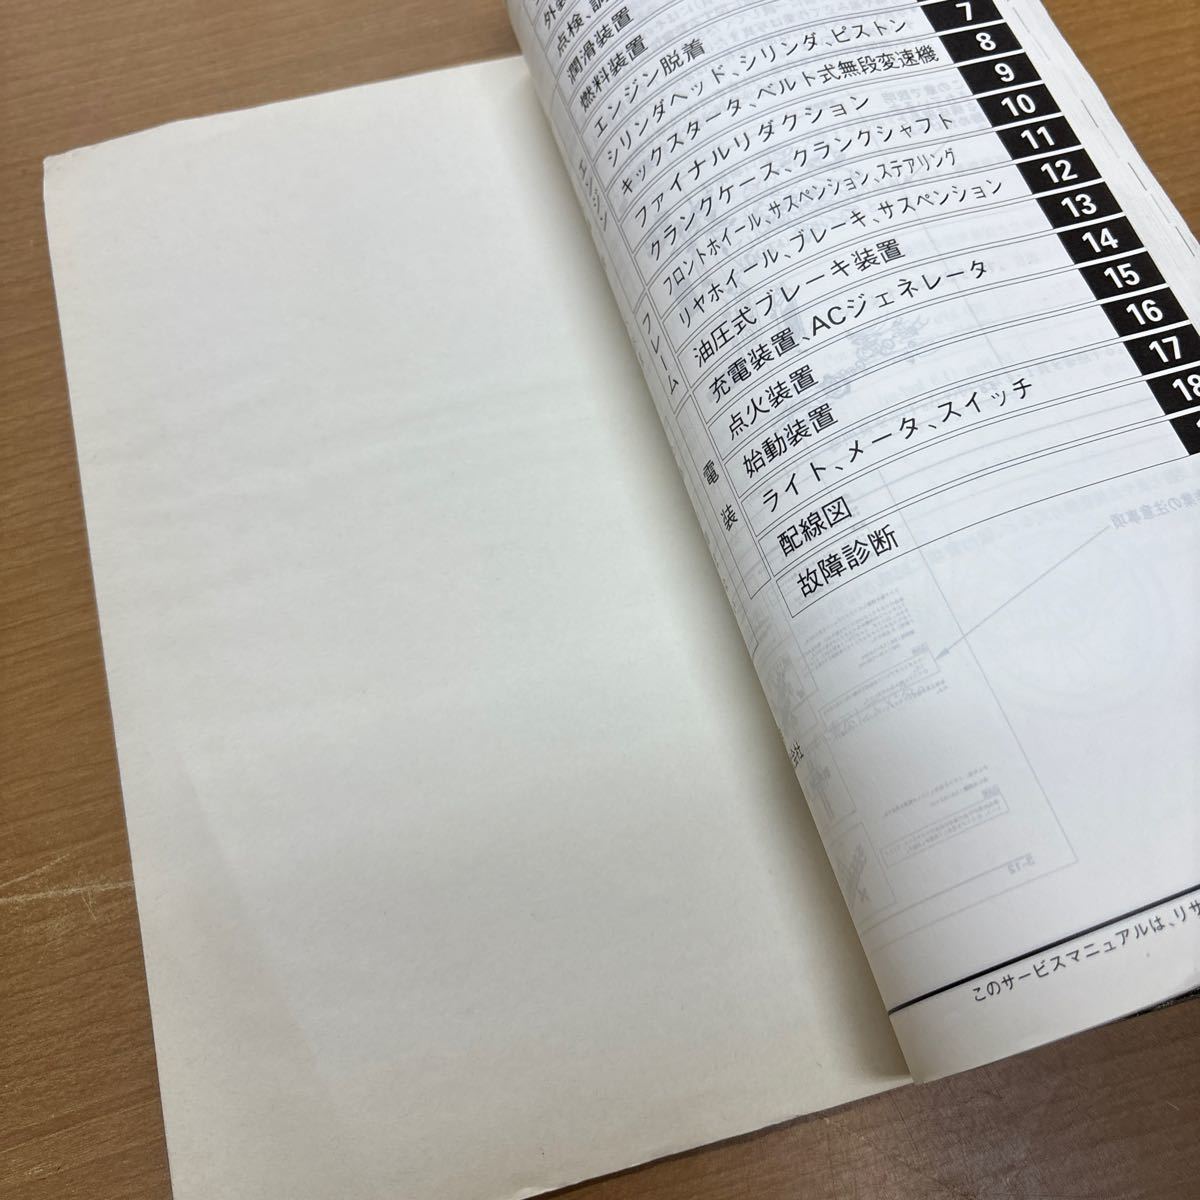 点検、
潤滑装置
燃料装置
エンジン脱着
シリンダヘッド、シリンダ、ピストン 7
キックスタータ、ベルト式無段変速機 8
ファイナルリダクション 9
クランクケース、クランクシャフト 10
フロントホイール、サスペンション、ステアリング 11
リヤホイール、ブレーキ、サスペンション 12
油圧式ブレーキ装置 13
充電装置、ACジェネレータ 14
点火装置 15
始動装置 16
ライト、メータ、スイッチ 17
配線図 18
故障診断
エンジン
フレーム
電装
会社
このサービスマニュアルは、リサ